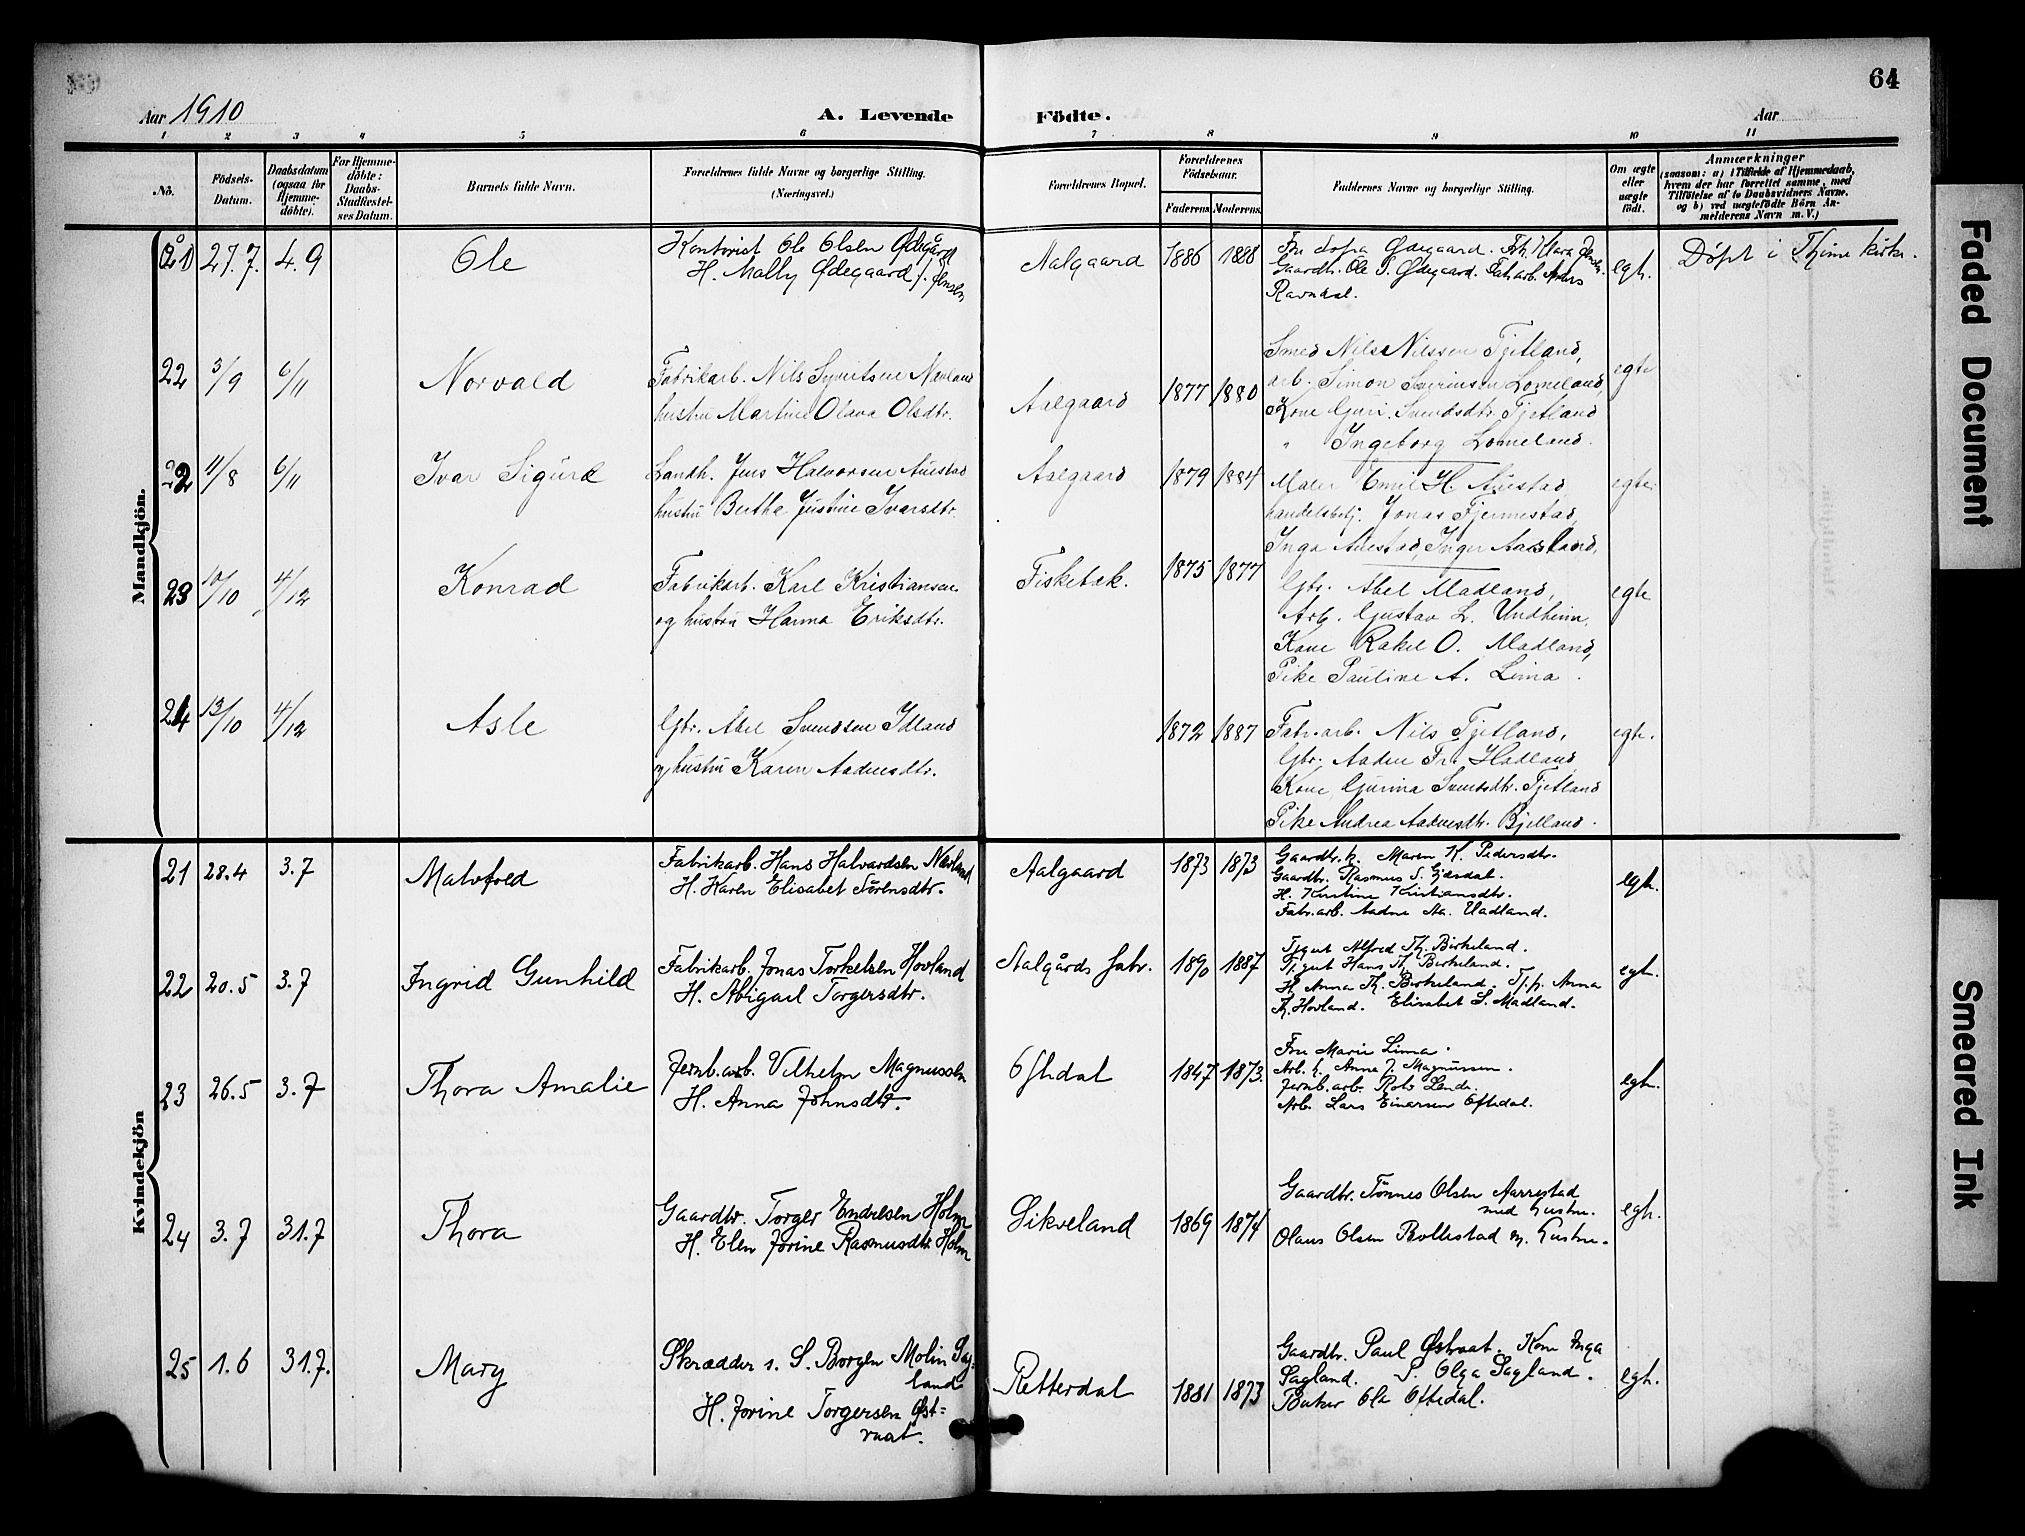 64
Aar 1910
A. Levende Födte.
Aar
1 2 3 4 5 6 7 8 9 10 11
No.
Födsels-Datum.
Daabsdatum (ogsaa for Hjemme-döbte).
For Hjemme-döbte: Daabs-Stadfæstel-ses Datum.
Barnets fulde Navn.
Forældrenes fulde Navne og borgerlige Stilling. (Næringsvei.)
Forældrenes Bopæl.
Forældrenes Födselsaar.
Faderens Moderens
Faddernes Navne og borgerlige Stilling.
Om ægte eller uægte födt.
Anmærkninger
(saasom: a) i Tilfælde af Hjemmedaab,
hvem der har forrettet samme, med
Tilföielse af to Daabsvidners Navne.
og b) ved uægtefödte Börn An-
melderens Navn m. V.)
Mandkjön.
21 27.7. 4.9 Ole
Kontorist Ole Olsen Ødegård
H. Mally Ødegaard f. Jensen
Aalgaard 1886 1888
Fru Sofia Ødegaard. Frk. Klara
Gaardbr. Ole S. Ødegaard. Fabr.arb.
Ravndal.
egt. Döpt i Thime kirke.
22 3/9 6/11 Norvald
Fabrikarb. Nils Syvertsen Nævland
hustru Martine Olava Olsdtr.
Aalgaard 1877 1880
Smed Nils Nilssen Tjetland,
arb. Simon Sverinsen Lomeland,
Kone Guri Svendsdtr. Tjetland
" Ingeborg Lomeland.
egte
22 11/8 6/11 Ivar Sigurd
Landh. Jens Halvorsen Auestad
hustru Bertha Justine Ivarsdtr.
Aalgaard 1879 1884
Maler Emil H. Auestad
handelsbetj. Jonas Fjermestad,
Inga Auestad, Inger Aarsland,
egte
23 10/10 4/12 Konrad
Fabrikarb. Karl Kristiansen
og hustru Hanna Eriksdtr.
Fiskebæk. 1875 1877
Gbr. Abel Madland,
Arb. Gustav L. Undheim,
Kone Rakel O. Madland,
Pike Pauline A. Lima.
egte
24 13/10 4/12 Asle
Gbr. Abel Svendsen Idland
og hustru Karen Aadnesdtr.
1872 1887
Fabr.arb. Nils Tjetland,
Gbr. Aadne Fr. Hadland
Kone Gurina Svendsdtr. Tjetland
Pike Andrea Aadnesdtr. Bjelland.
egte.
Kvindekjön
21 28.4 3.7 Malvfred
Fabrikarb. Hans Halvardsen Nævland
H. Karen Elisabet Sörensdtr.
Aalgaard 1873 1873
Gaardbr. k. Maren K. Pedersdtr.
Gaardbr. Rasmus S. Gjesdal.
H. Kristine Kristiansdtr.
Fabr.arb. Aadne Aa. Vadland.
egt.
22 20.5 3.7 Ingrid Gunhild
Fabrikarb. Jonas Torkelsen Hovland
H. Abigael Torgersdtr.
Aalgårds fabr. 1890 1887
Tjgut Alfred Th. Birkeland.
Tj.gut Hans Th. Birkeland.
H. Anna Th. Birkeland. Tj.p. Anna
Th. Hovland. Elisabet S. Madland.
egt.
23 26.5 3.7 Thora Amalie
Jernb.arb. Vilhelm Magnussen
H. Anna Johnsdtr.
Oftedal 1847 1873.
Fru Marie Lima.
Arb. k. Anne J. Magnussen.
Jernb.arb. Rolv Lende.
Arb. Lars Einarsen Oftedal.
egt.
24 3.7 31.7 Thora
Gaardbr. Torger Endresen Holm
H. Elen Jorine Rasmusdtr. Holm
Sikveland 1869 1874
Gaardbr. Tönnes Olsen Aarrestad
med hustru.
Olaus Olsen Bollestad m. hustru.
egt.
25 1.6 31.7. Mary
Skrædder s. S. Borgen Molin Sag-
land
H. Jorine Torgersen Øst-
raat.
Retterdal 1881 1873
Gaardbr. Paul Østraat. Kone Inga
Sagland. P. Olga Sagland.
Baker Ola Oftedal.
egt.
Faded Document
Smeared Ink